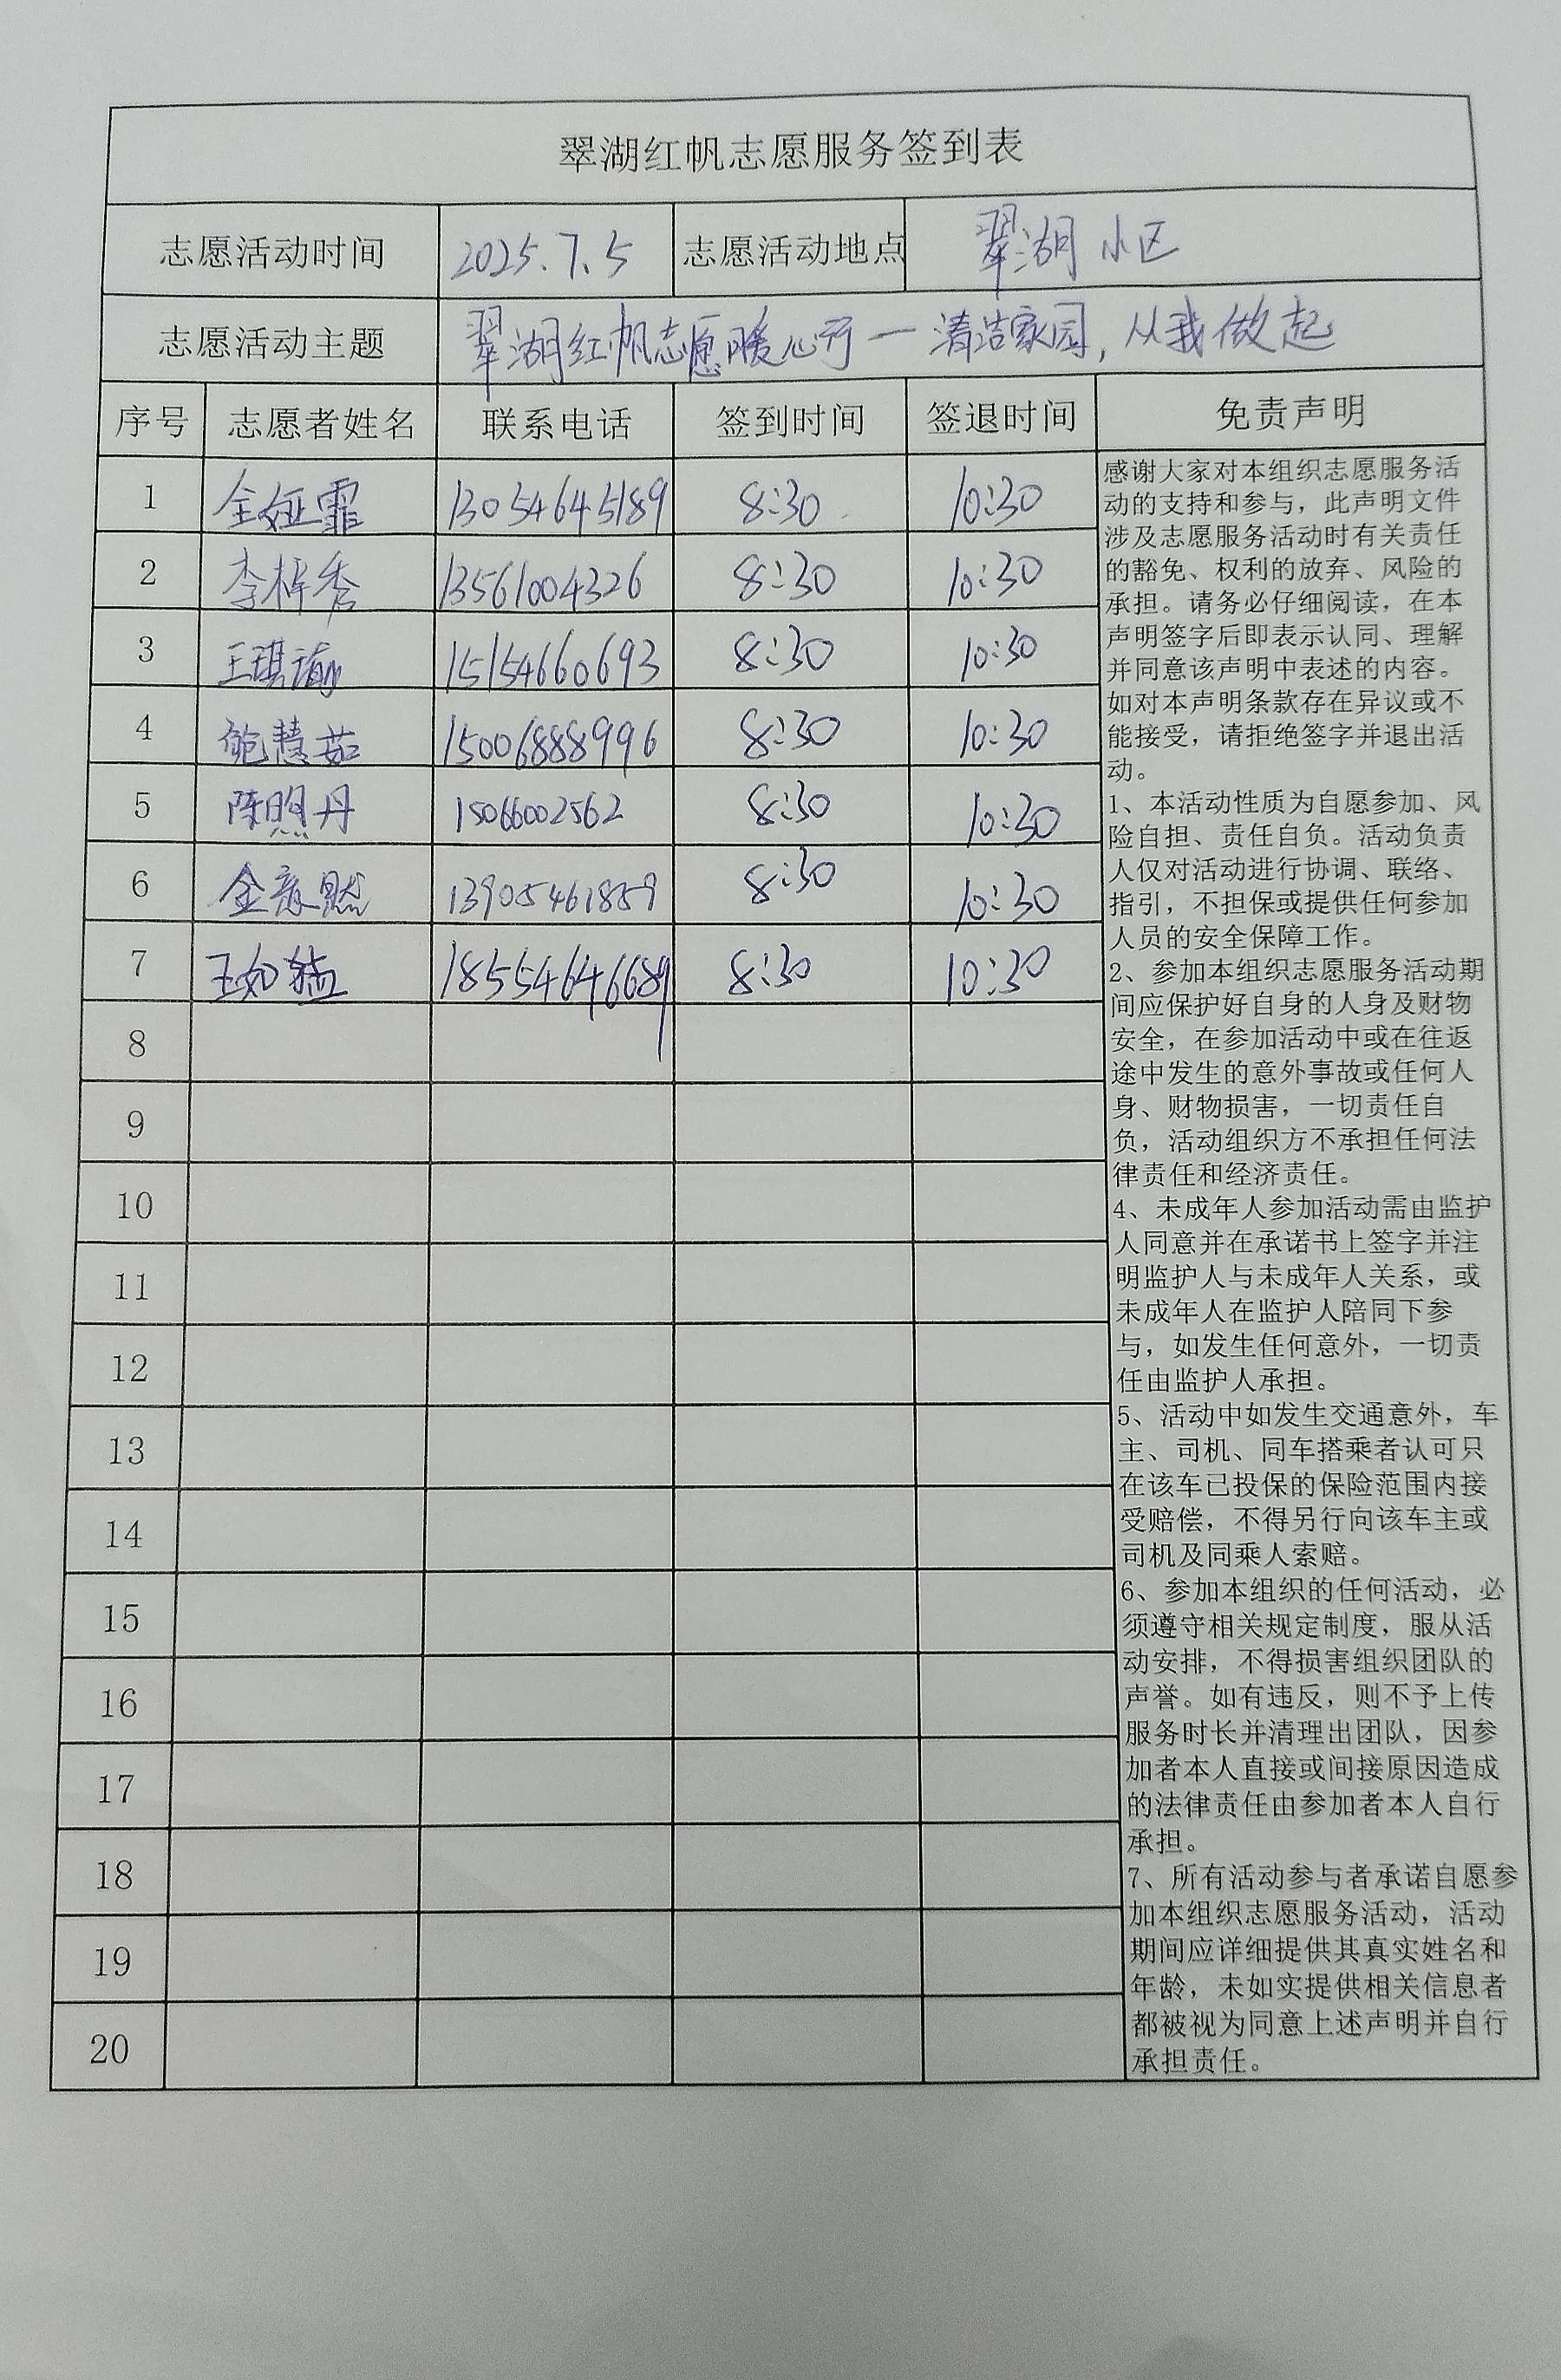 翠湖红帆志愿服务签到表
志愿活动时间 2025.7.5 志愿活动地点 翠湖小区
志愿活动主题 翠湖红帆志愿暖心行一清洁家园,从我做起
序号 志愿者姓名 联系电话 签到时间 签退时间 免责声明
1 13054645189 8:30 10:30
2 李梓秀 13561004326 8:30 10:30
3 王琪瑜 15154660693 8:30 10:30
4 鲍慧茹 15006888996 8:30 10:30
5 陈照丹 15066002562 8:30 10:30
6 13905461859 8:30 10:30
7 18554646689 8:30 10:30
8
9
10
11
12
13
14
15
16
17
18
19
20
感谢大家对本组织志愿服务活
动的支持和参与，此声明文件
涉及志愿服务活动时有关责任
的豁免、权利的放弃、风险的
承担。请务必仔细阅读，在本
声明签字后即表示认同、理解
并同意该声明中表述的内容。
如对本声明条款存在异议或不
能接受，请拒绝签字并退出活
动。
1、本活动性质为自愿参加、风
险自担、责任自负。活动负责
人仅对活动进行协调、联络、
指引，不担保或提供任何参加
人员的安全保障工作。
2、参加本组织志愿服务活动期
间应保护好自身的人身及财物
安全，在参加活动中或在往返
途中发生的意外事故或任何人
身、财物损害，一切责任自
负，活动组织方不承担任何法
律责任和经济责任。
4、未成年人参加活动需由监护
人同意并在承诺书上签字并注
明监护人与未成年人关系，或
未成年人在监护人陪同下参
与，如发生任何意外，一切责
任由监护人承担。
5、活动中如发生交通意外，车
主、司机、同车搭乘者认可只
在该车已投保的保险范围内接
受赔偿，不得另行向该车主或
司机及同乘人索赔。
6、参加本组织的任何活动，必
须遵守相关规定制度，服从活
动安排，不得损害组织团队的
声誉。如有违反，则不予上传
服务时长并清理出团队，因参
加者本人直接或间接原因造成
的法律责任由参加者本人自行
承担。
7、所有活动参与者承诺自愿参
加本组织志愿服务活动，活动
期间应详细提供其真实姓名和
年龄，未如实提供相关信息者
都被视为同意上述声明并自行
承担责任。